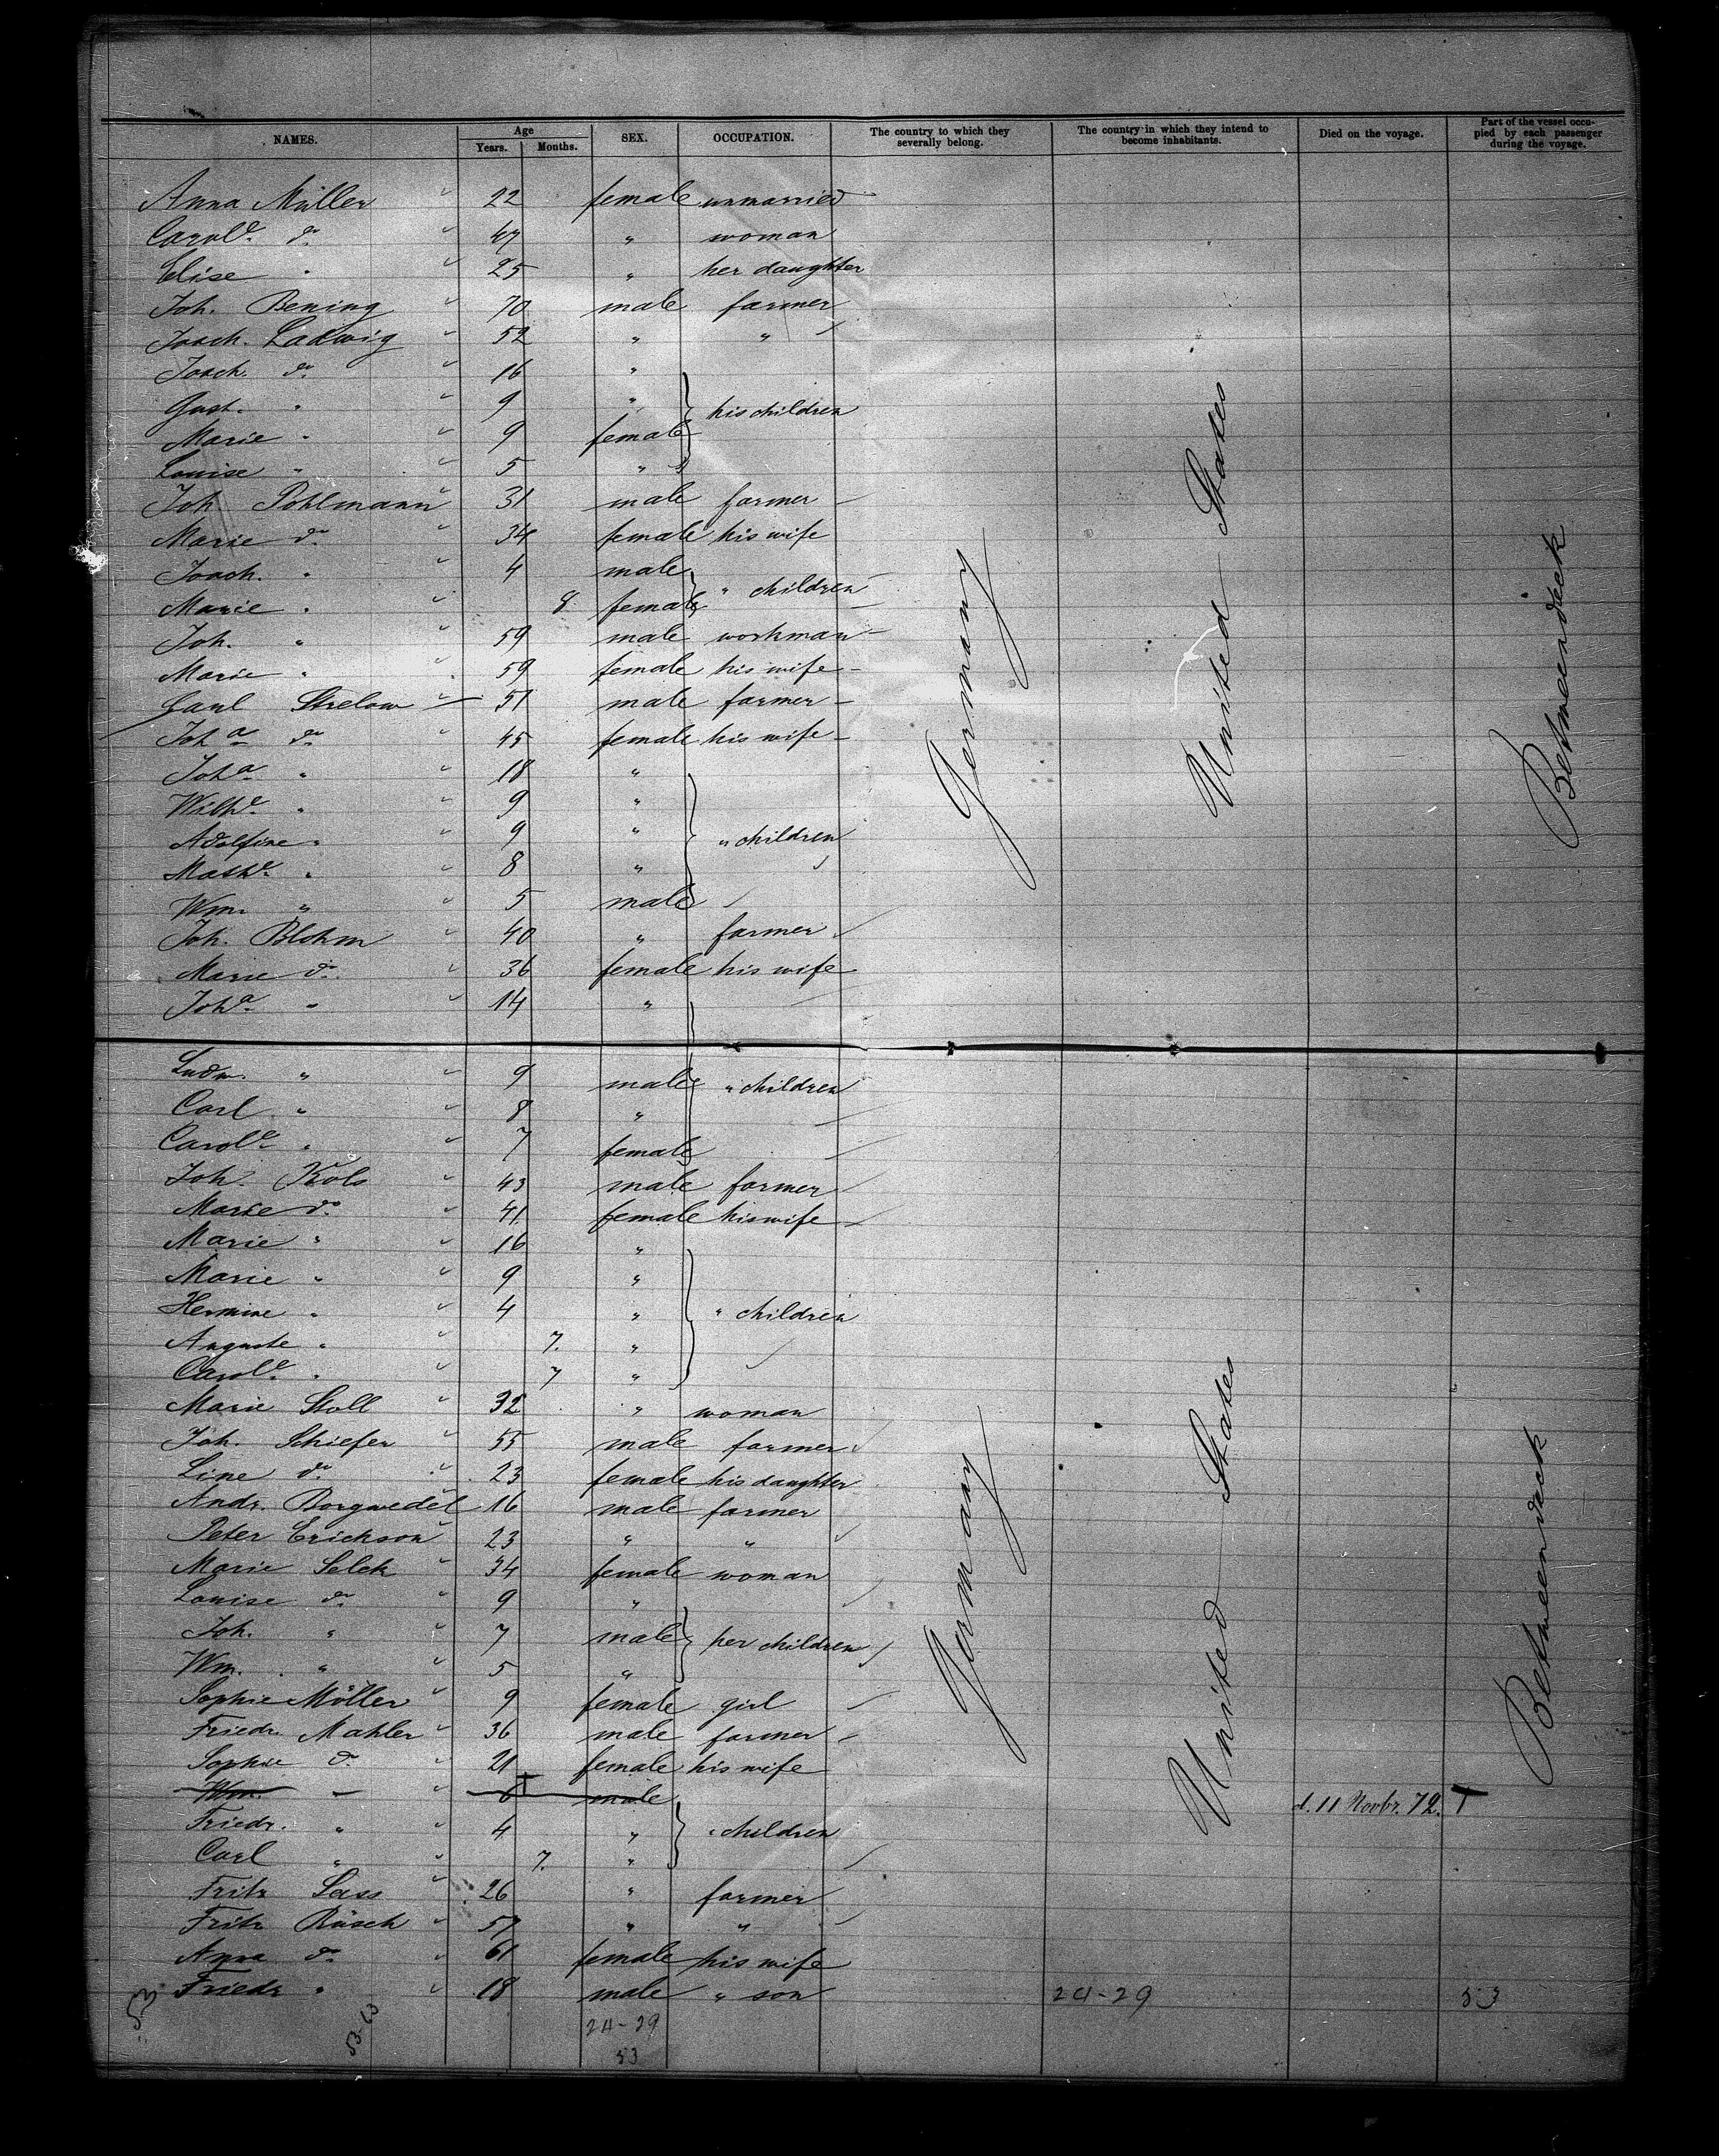 NAMES. Age SEX. OCCUPATION. The country to which they severally belong. The country in which they intend to become inhabitants. Died on the voyage. Part of the vessel occupied by each passenger during the voyage.
Years. Months.
Anna Müller 22 female unmarried
Carole. do. 47 " woman
Elise " 25 " her daughter
Joh. Bening 70 male farmer
Joach. Ladwig 52 " "
Joach. do. 16 "
Gust. " 9 " his children
Marie " 9 female
Louise " 5 "
Joh Pohlmann 31 male farmer
Marie do. 34 female his wife
Joach. " 4 male " children
Marie " 8 female
Joh. " 59 male workman
Marie " 59 female his wife
Carl Strelow 51 male farmer
Joha do. 45 female his wife
Joha " 18 "
Wilhe. " 9 "
Adolfine " 9 " " children
Mathe. " 8 "
Wm. " 5 male
Joh. Blohm 40 " farmer
Marie do. 36 female his wife
Joha. " 14 "
Germany United States Betweendeck
Ludw. " 9 male " children
Carl " 8 "
Carole. " 7 female
Joh. Kols 43 male farmer
Marie do. 41 female his wife
Marie " 16 "
Marie " 9 "
Hermine " 4 " " children
Auguste " 7. "
Carole. " 7 "
Marie Stoll 32 " woman
Joh. Schiefer 55 male farmer
Line do. 23 female his daughter
Andr. Borgwedel 16 male farmer
Peter Erickson 23 " "
Marie Selek 34 female woman
Louise do. 9 "
Joh. " 7 male her children
Wm. " 5 "
Sophie Möller 9 female girl
Friedr. Mahler 36 male farmer
Sophie do. 21 female his wife
Wm. 6 male d. 11 Novbr. 72. T
Friedr. " 4 " " children
Carl " 7. "
Fritz Sass 26 " farmer
Fritz Rüsch 57 " "
Anna do. 61 female his wife
Friedr " 18 male " son
Germany United States Betweendeck
24-29 53
24-29
53
53